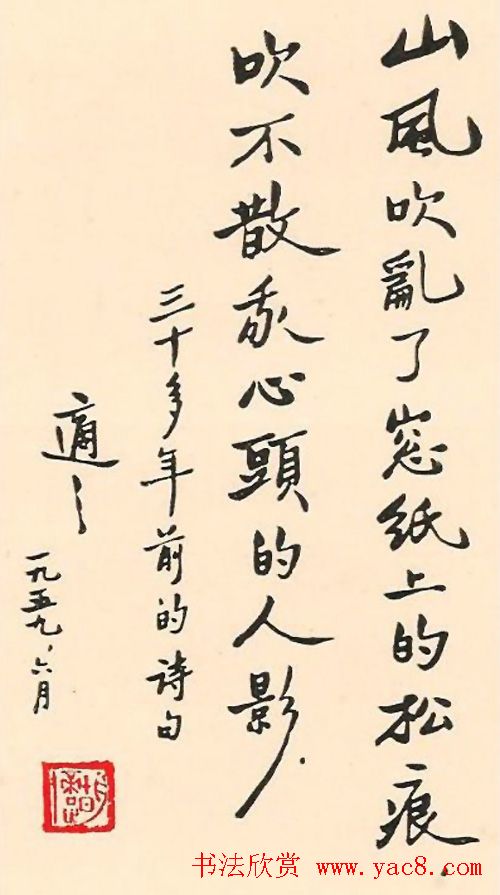 山風吹亂了窓紙上的松痕.
吹不散我心頭的人影.
三十多年前的詩句
適之
一九五九、六月
书法欣赏 www.yac8.com